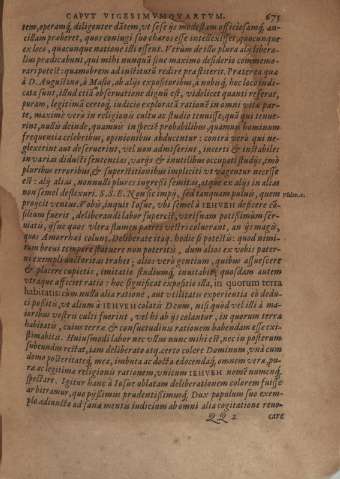 CAPVT VIGESIMVMQVARTVM. 675
tem, operamq́, diligenter dătem, ut sese ac modestam officiosamq́, an-
cillam praeberet, quos contingi foo baros esse intellexisset, quocunque
ex loco, quacunque natione illi essent. Verum de illo plura alij libera-
lim praedicabunt, qui mihi nunquā sine maximo desiderio commemo-
rari potest: quamobrem ad institutū redire praestiterit. Praeterea quae
à D. Augustino, à Masio, ab alijs expositoribus, à nobisq́, hoc loco indi-
cata sunt, illud etiā obseruatione dignū est, videlicet quanti referat,
puram, legitimā certāq́, iudicio exploratā rationē in omni vita par-
te, maximè verò in religionis cultu ac studio tenuisse, quā qui tenue-
rint, nullis deinde, quamuis in speciē probabilibus, quamuis hominum
frequentia celebribus, opinionibus abducentur: contra verò qui ne-
glexerint aut deseruerint, vel non admiserint, incertis & instabiles
in varias diducti sententias, varijs & inutilibus occupati studijs, imò
pluribus erroribus & superstitionibus impliciti vt vagentur necesse
est: alij alias, nonnulli plures ingressi semitas, atque ex alijs in alias
non semel deflexuri. S. S. E. Non sic impij, sed tanquam puluis, quem
proijcit ventus. Vobis, inquit Iosue, vbi semel à IEHVEH desciscere cō-
silium fuerit, deliberandi labor superest, varijs nam potissimùm ser-
uiatis, ijs ne quos vltra flumen patres vestri coluerunt, an ijs magis,
quos Amorrhaei colunt. Deliberate itaq. hodie si potestis: quod mini-
tum breui tempore statuere non poteritis, dum alios ex vobis pater-
ni exempli auctoritas trahet, alios verò gentium, quibus assuescere
& placere cupietis, imitatio studiumq́, inuitabit, quosdam autem
vtraque afficiet ratio: hoc significat expositio illa, in quorum terra
habitatis: cùm nulla alia ratione, aut vtilitatis experientia eò dedu-
ci possitis, vt alium à IEHVEH colatis Deum, nisi quòd vel illi à ma-
ioribus vestris culti fuerint, vel hi ab ijs colantur, in quorum terra
habitatis, cuius terrae & consuetudinis rationem habendam esse exi-
stimabitis. Huiusmodi labor nec vllus nunc mihi est, nec in posterum
subeundus restat, iam deliberato atq. certo colere Dominum, vnà cum
domo posteritateq́, mea, imbuta ac docta edocendaq́, omnem vera, pu-
ra ac legitima religionis rationem, vnitum IEHVEH nomē numenq́,
spectare. Igitur hanc à Iosue oblatam deliberationem colorem fuisse
arbitramur, quo pijssimus prudentissimusq́. Dux populum suo exem-
plo adiuncta ad sana mentis iudicium ab omni alia cogitatione reuo-
QQ 2 care